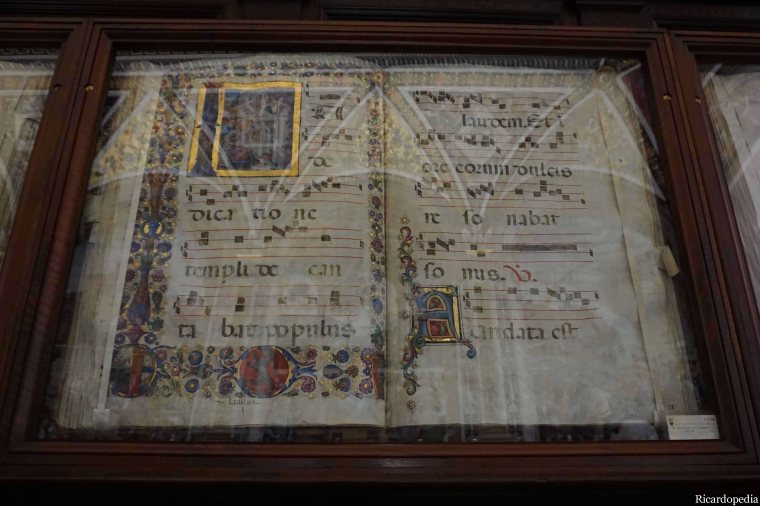 de
dica tio ne
templi de can
ta bat populus
laudem. Et i
ore eorum dulcis
re so nabat
so nus. V.
Fundata est
Ricardopedia